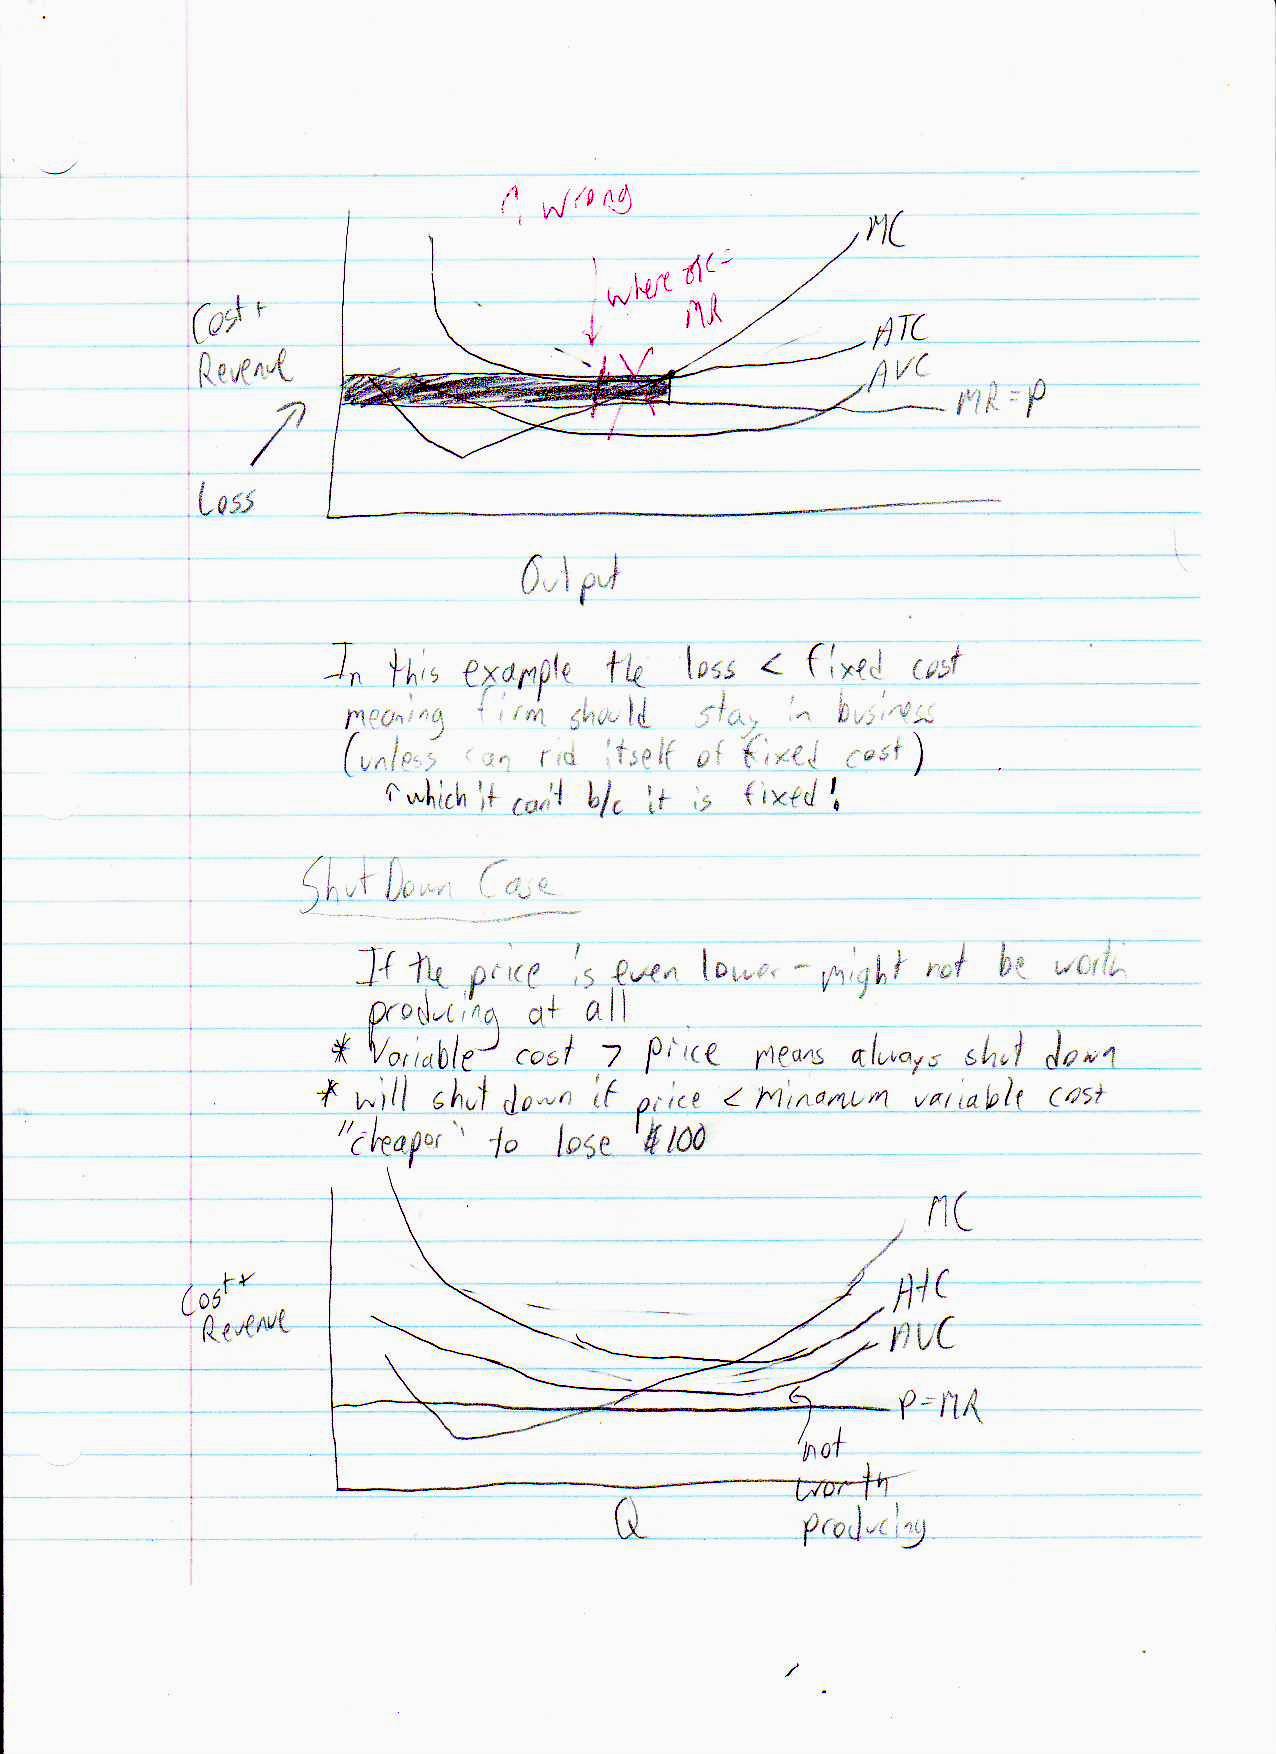 ↑ wrong
where MC =
MR
MC
Cost +
Revenue
ATC
AVC
MR = P
Loss
Output
In this example the loss < fixed cost
meaning firm should stay in business
(unless can rid itself of fixed cost)
↑ which it can't b/c it is fixed!
Shut Down Case
If the price is even lower - might not be worth
producing at all
* Variable cost > price means always shut down
* will shut down if price < minamum variable cost
"cheapor" to lose $100
MC
Cost +
Revenue
ATC
AVC
P = MR
not
worth
producing
Q